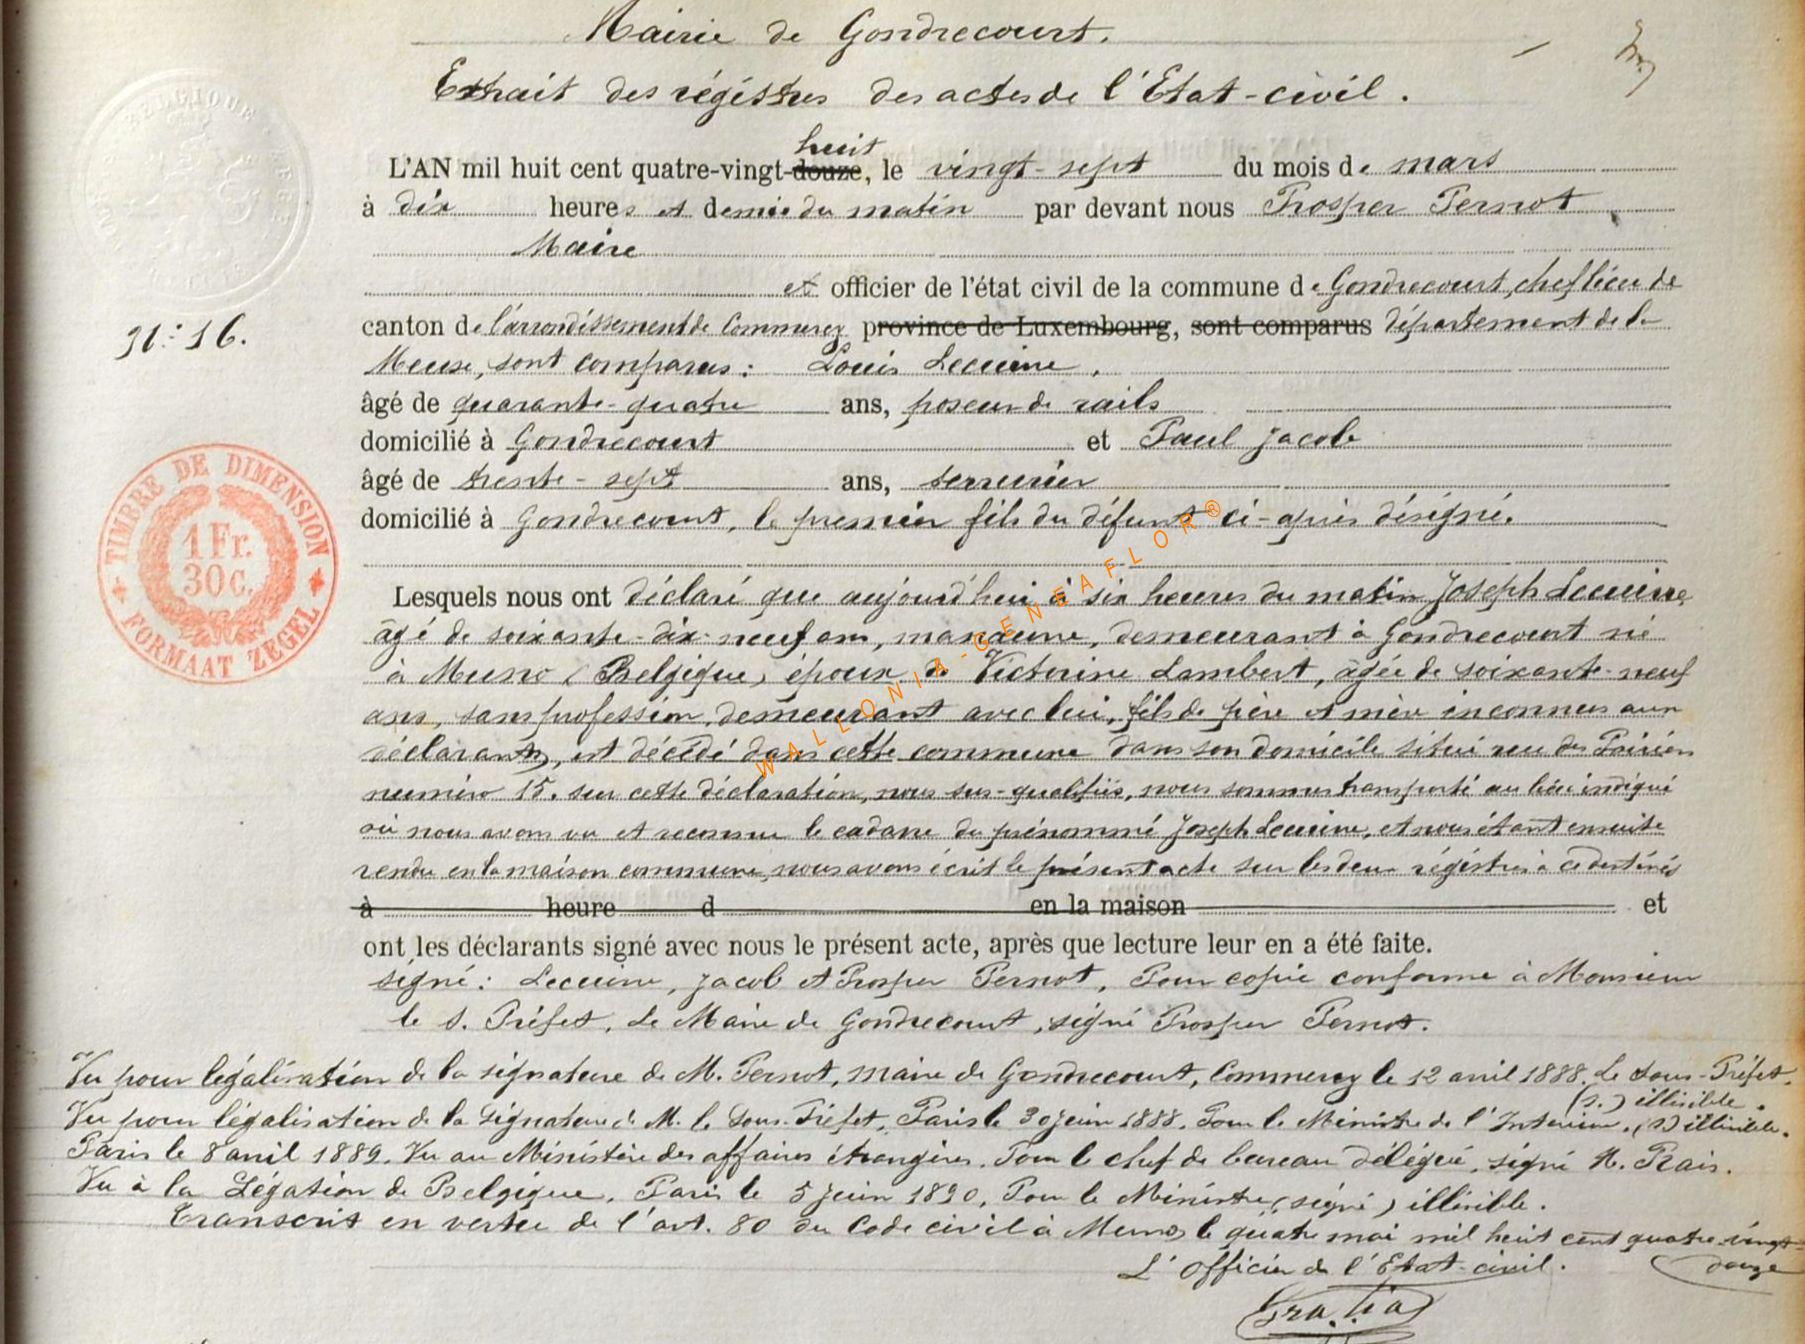 Mairie de Gondrecourt.
Extrait des régistres des actes de l'Etat-civil.
huit
L'AN mil huit cent quatre-vingt-douze, le vingt-sept du mois de mars
à dix heures et demie du matin par devant nous Prosper Pernot
Maire
et officier de l'état civil de la commune de Gondrecourt, chef lieu de
canton de l'arrondissement de Commercy province de Luxembourg, sont comparus département de la
Meuse, sont comparus : Louis Lecuine,
âgé de quarante-quatre ans, poseur de rails
domicilié à Gondrecourt et Paul Jacob
âgé de trente-sept ans, serrurier
domicilié à Gondrecourt, le premier fils du défunt ci-après désigné.
Lesquels nous ont déclaré que aujourd'hui à six heures du matin Joseph Lecuine
âgé de soixante-dix-neuf ans, manœuvre, demeurant à Gondrecourt né
à Muno (Belgique) époux de Victorine Lambert, âgée de soixante-neuf
ans, sans profession, demeurant avec lui, fils de père et mère inconnus aux
déclarants, est décédé dans cette commune dans son domicile situé rue des Poiriers
numéro 15. sur cette déclaration, nous sus-qualifiés, nous sommes transporté au lieu indiqué
où nous avons vu et reconnu le cadavre du prénommé Joseph Lecuine, et nous étant ensuite
rendu en la maison commune, nous avons écrit le présent acte sur les deux régistres à ce destinés
à heure d en la maison et
ont les déclarants signé avec nous le présent acte, après que lecture leur en a été faite.
signé : Lecuine, Jacob et Prosper Pernot, Pour copie conforme à Monsieur
le S. Préfet. Le Maire de Gondrecourt, signé Prosper Pernot.
Vu pour légalisation de la signature de M. Pernot, maire de Gondrecourt, Commercy le 12 avril 1888. Le Sous-Préfet.
(s.) illisible.
Vu pour légalisation de la signature de M. le Sous-Préfet, Paris le 30 juin 1888. Pour le Ministre de l'Intérieur. (s) illisible.
Paris le 8 avril 1889. Vu au Ministère des affaires étrangères. Pour le chef de bureau délégué, signé H. Rais.
Vu à la Légation de Belgique. Paris le 5 juin 1890. Pour le Ministre, (signé) illisible.
Transcrit en vertu de l'art. 80 du Code civil à Muno le quatre mai mil huit cent quatre-vingt-
douze
L'Officier de l'Etat-civil.
N.° 16.
BELGIQUE
TIMBRE DE DIMENSION
1 Fr.
30 C.
FORMAAT ZEGEL
WALLONIA-GENEAFLOR®